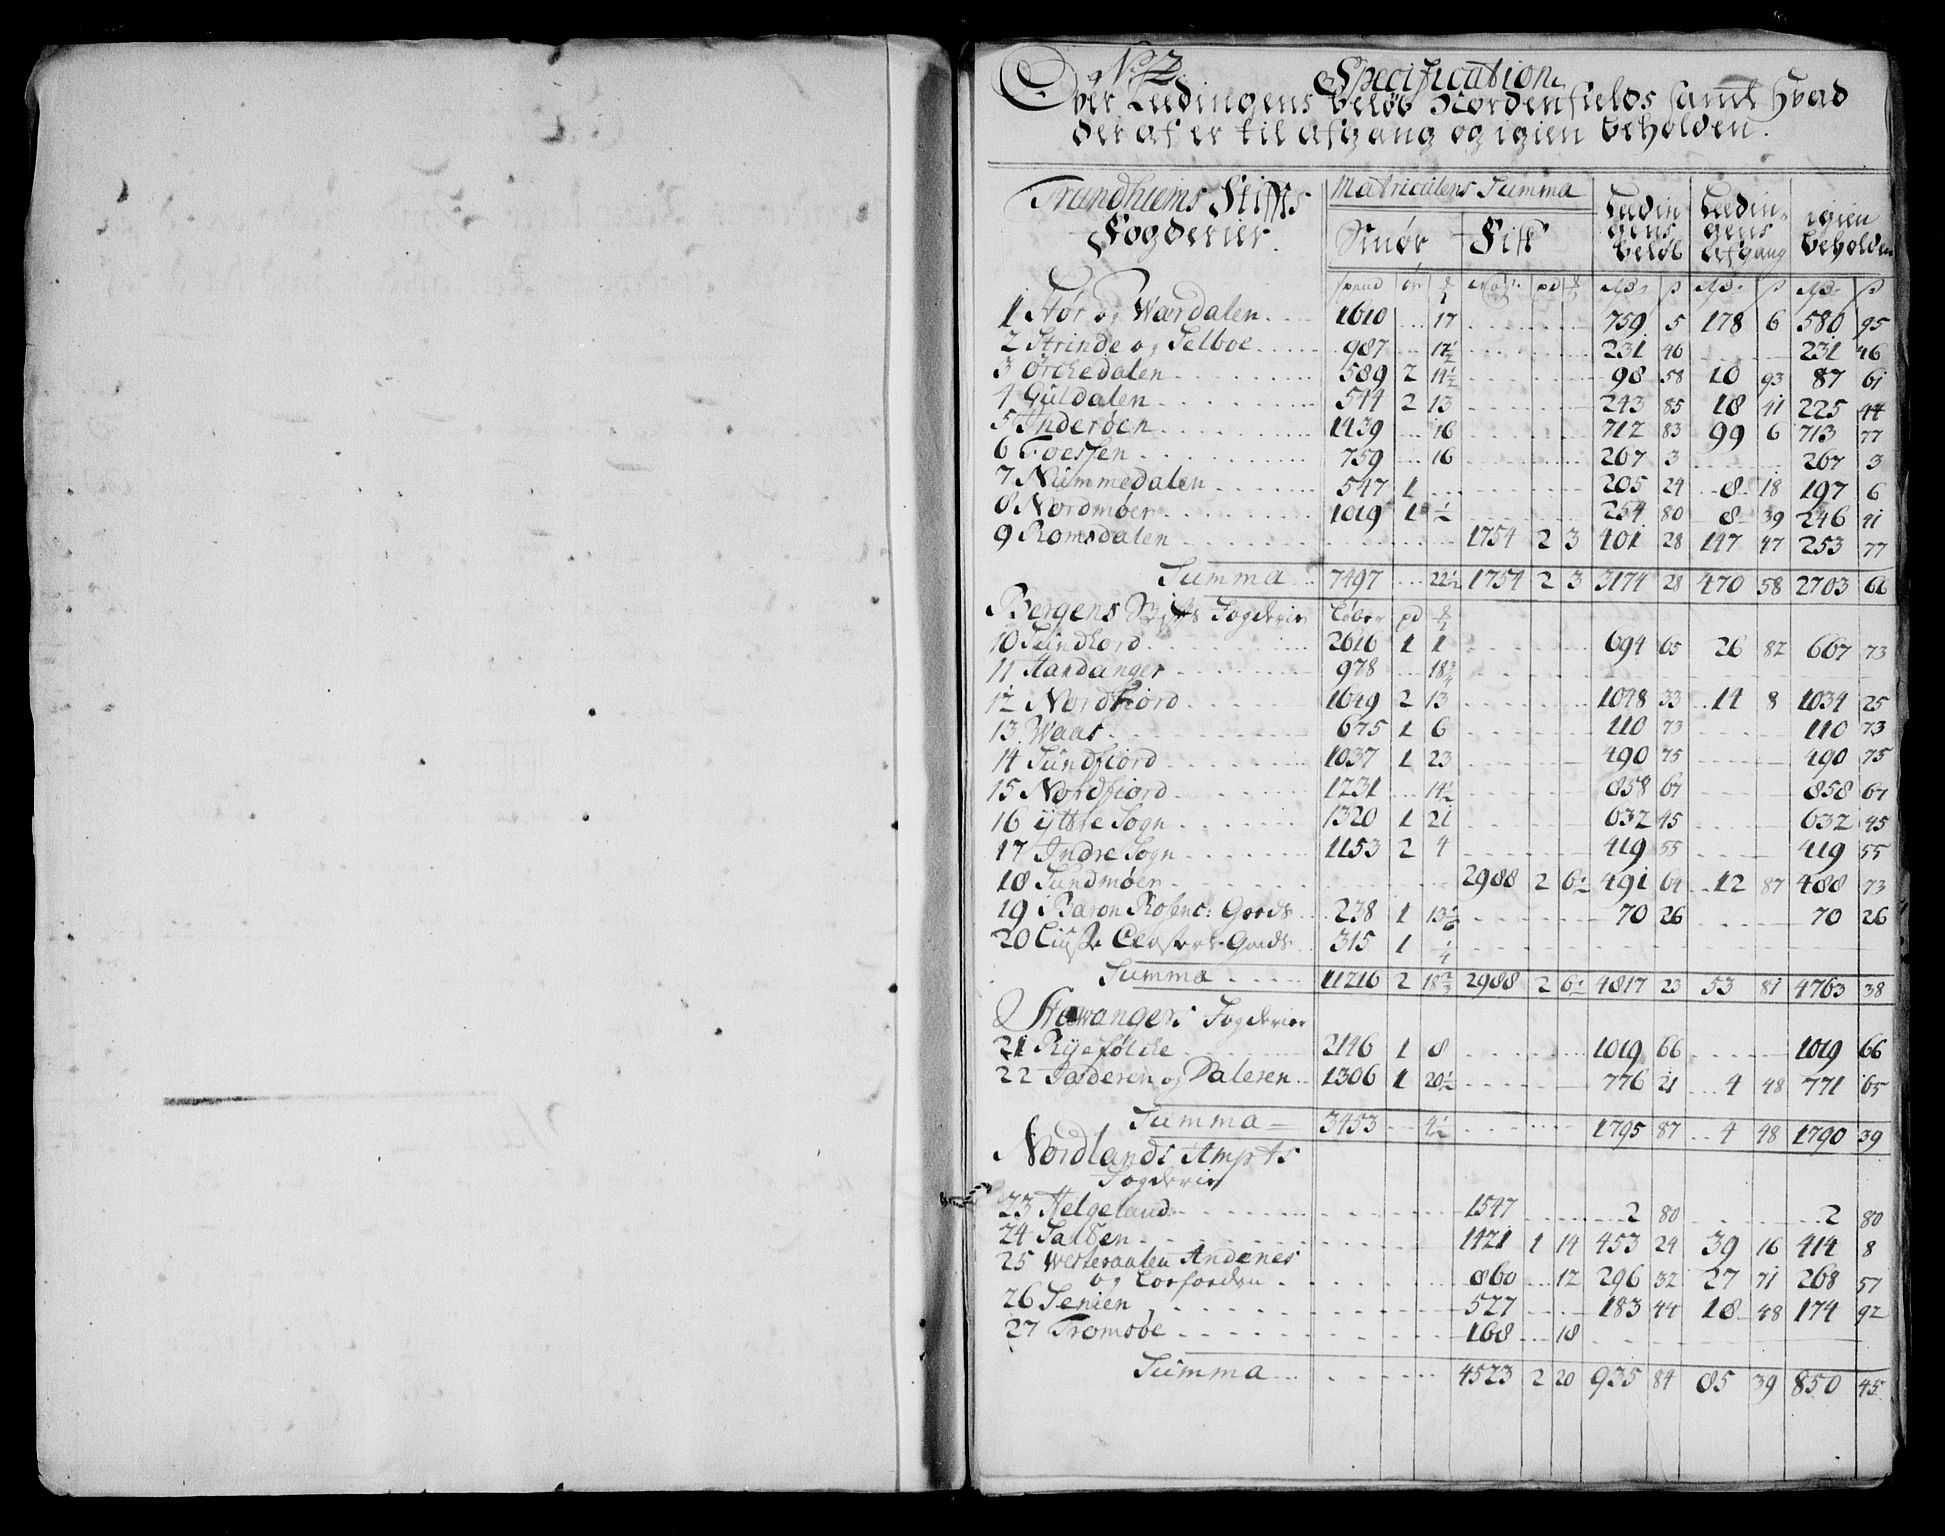 No 7.
Specification
Over Leedingens beløb Nordenfields samt hvad
der af er til afgang og igien beholden.
Trundhiems Stiffts Fogderier. Matriculens Summa Leedingens beløb Leedingens afgang igien beholden
Smør Fisk
spand ør
1 Stør og Wærdalen 1610 17 759 5 178 6 580 95
2 Strinde og Selboe 987 17½ 231 46 231 46
3 Ørchedalen 589 2 14½ 98 58 10 93 87 61
4 Guldalen 544 2 13 243 85 18 41 225 44
5 Inderøen 1439 16 712 83 99 6 713 77
6 Foessen 759 16 267 3 267 3
7 Nummedalen 547 1 205 24 8 18 197 6
8 Nordmøer 1019 1 ½ 254 80 8 39 246 41
9 Romsdalen 1754 2 3 401 28 147 47 253 77
Summa 7497 22½ 1754 2 3 3174 28 470 58 2703 66
Bergens Stifts Fogderier Løber pd
10 Sundhord 2616 1 1 694 65 26 82 667 73
11 Hardanger 978 18¾
12 Nordhord 1649 2 13 1048 33 14 8 1034 25
13 Waas 675 1 6 110 73 110 73
14 Sundfiord 1037 1 23 490 75 490 75
15 Nordfiord 1231 14½ 858 67 858 67
16 ÿttre Sogn 1320 1 21 632 45 632 45
17 Indre Sogn 1153 2 4 419 55 419 55
18 Sundmøer 2988 2 6½ 491 64 12 87 488 73
19 Baron Rosenc: Gods 238 1 13 70 26 70 26
20 Liuse Closters Gods 315 1 ¼
Summa 11216 2 18⅔ 2988 2 6½ 4817 23 53 81 4763 38
Stawangers Fogderier
21 Ryefølcke 2146 1 8 1019 66 1019 66
22 Jæderen og Dalerne 1306 1 20½ 776 21 4 48 771 65
Summa 3453 4½ 1795 87 4 48 1790 39
Nordlands Ampts
Fogderier
23 Helgeland 1547 2 80 2 80
24 Salten 1421 1 14 453 24 39 16 414 8
25 Westeraalen Andenes
og Lofforden 860 12 296 32 27 71 268 57
26 Senien 527 183 44 18 48 174 92
27 Tromsøe 168 18
Summa 4523 2 20 935 84 85 39 850 45